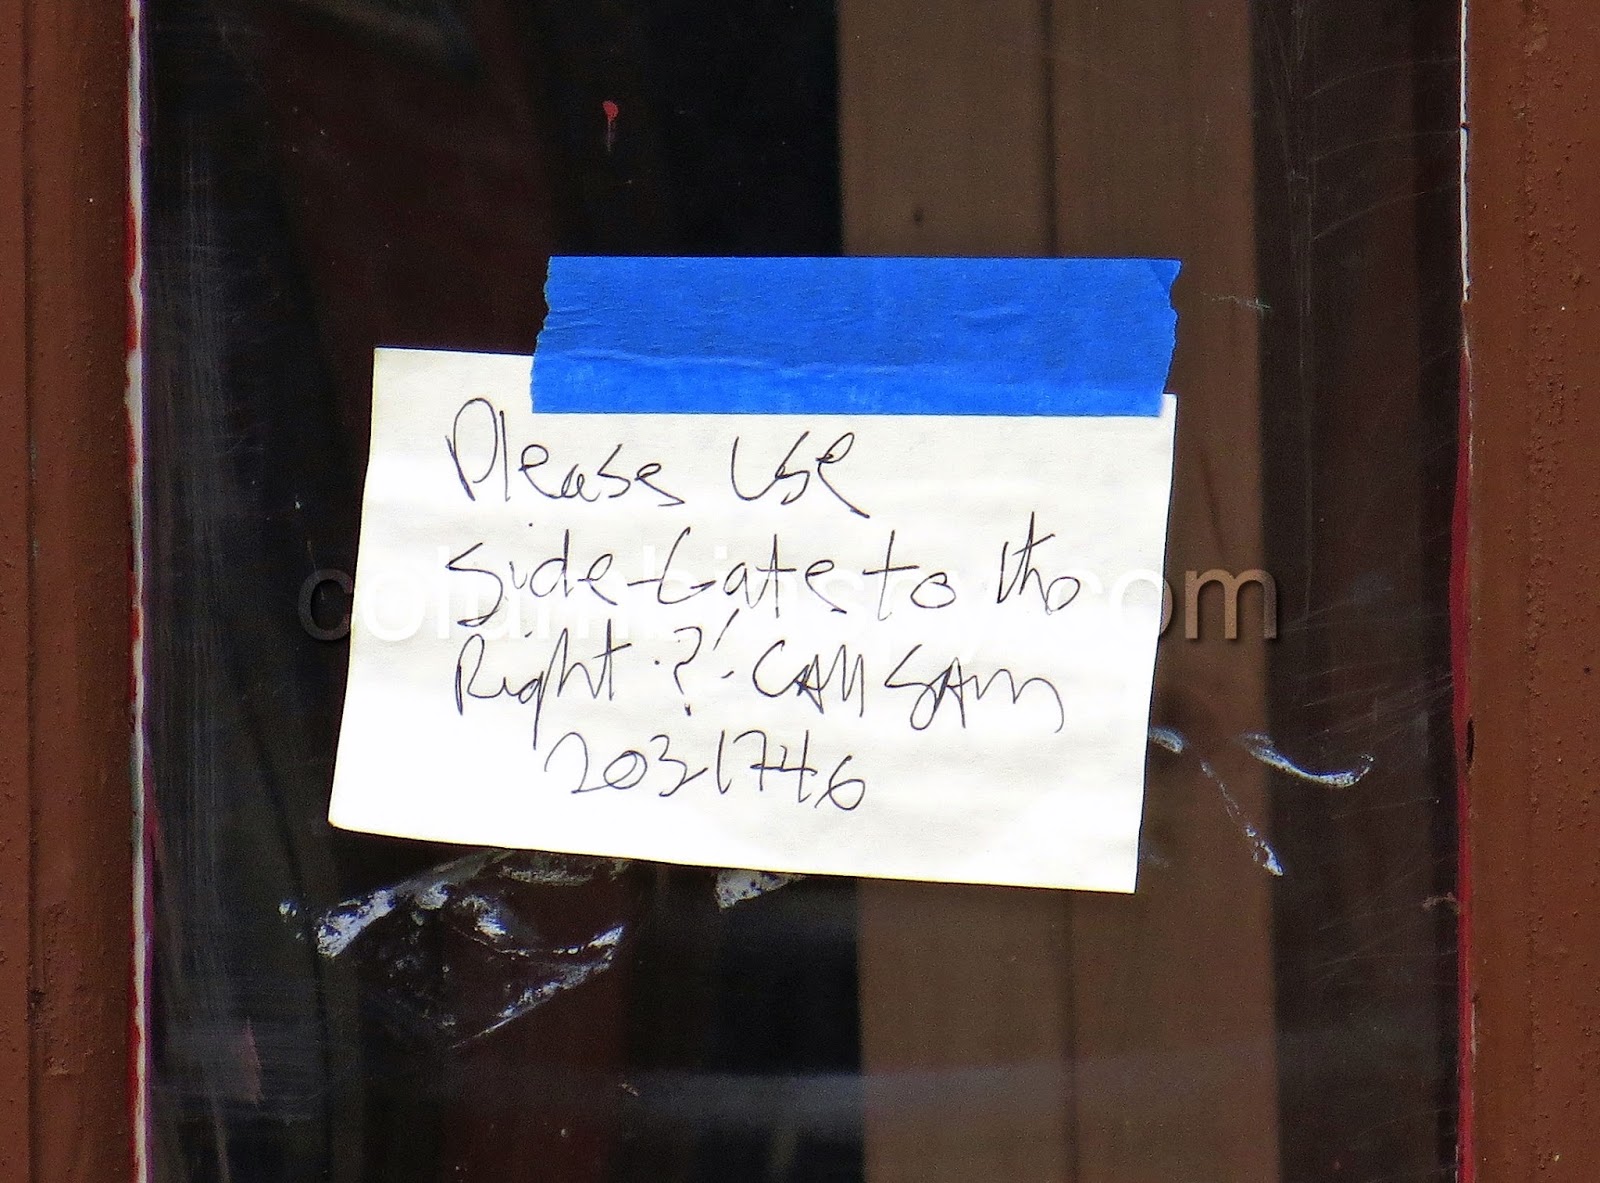 Please Use
Side-Gate to the
Right ?! CAll SAm
2031746
columbinspy.com